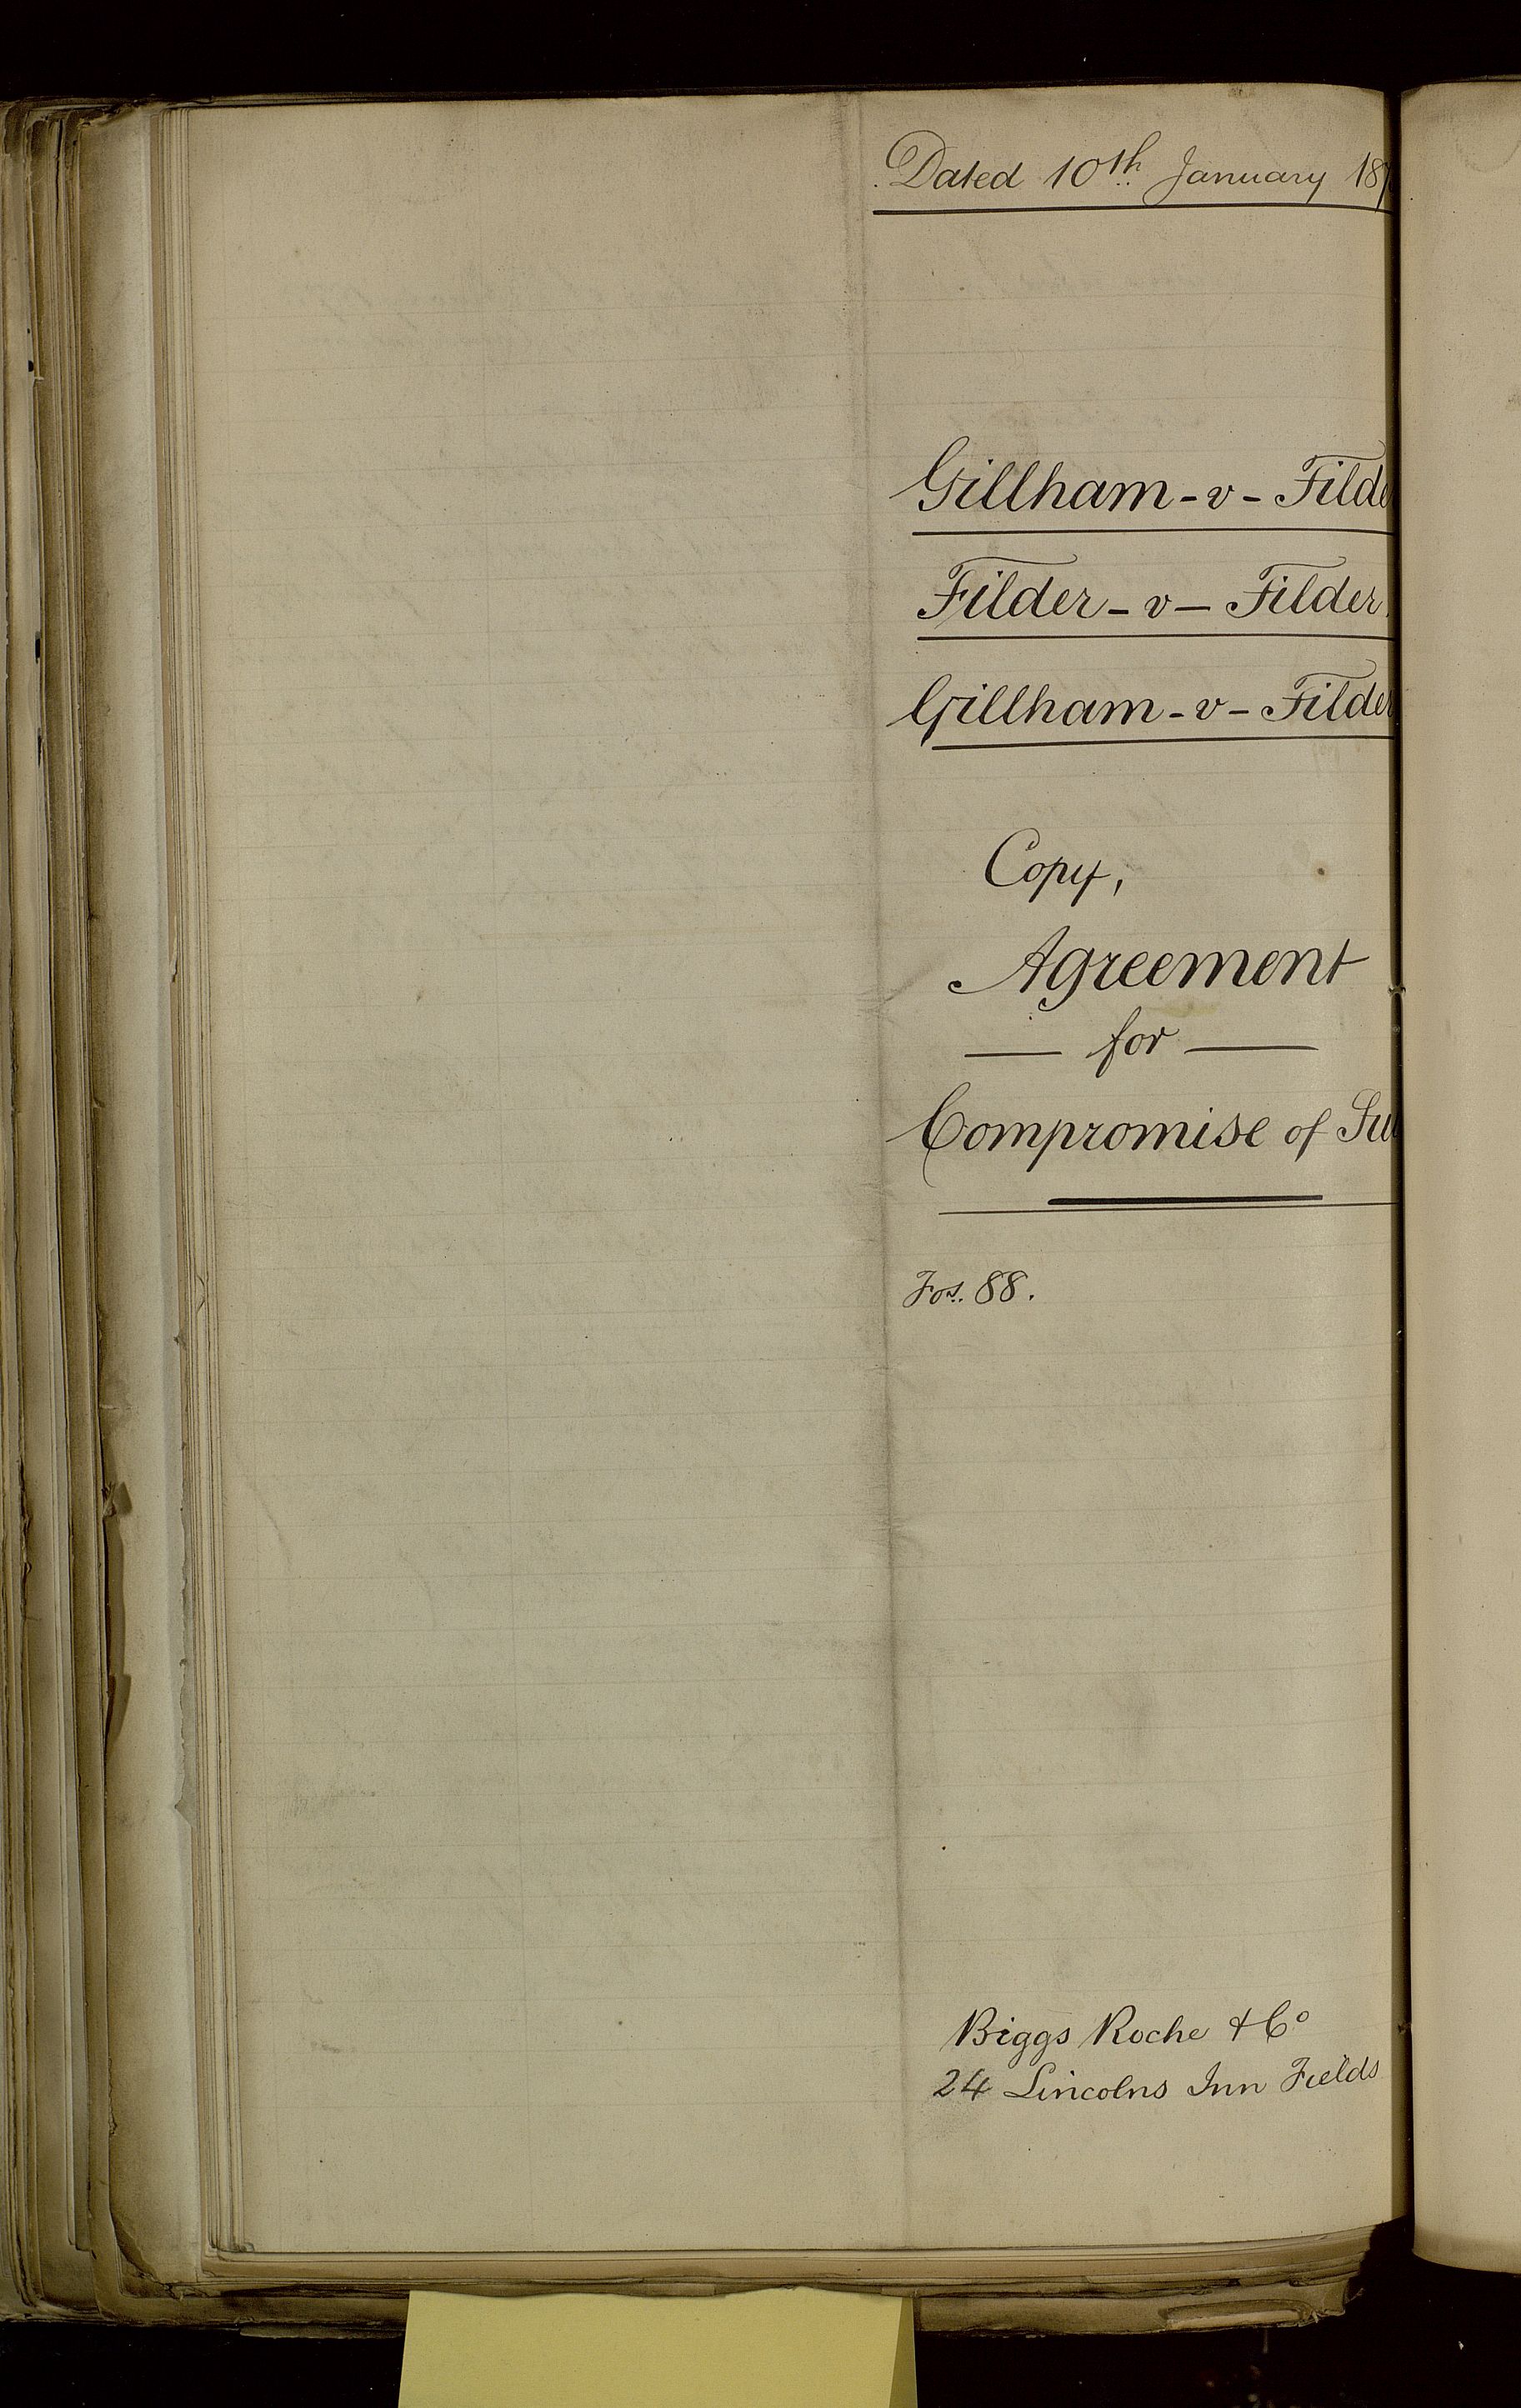 Dated 10th January 187
Gillham - v - Filde
Filder - v - Filder
Gillham - v - Filder
Copy,
Agreement
for
Compromise of Su
Fos. 88.
Biggs Roche & Co
24 Lincolns Inn Fields